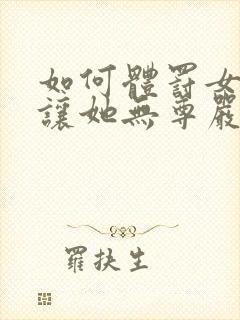 如何體罸女
讓她無尊嚴
羅扶生